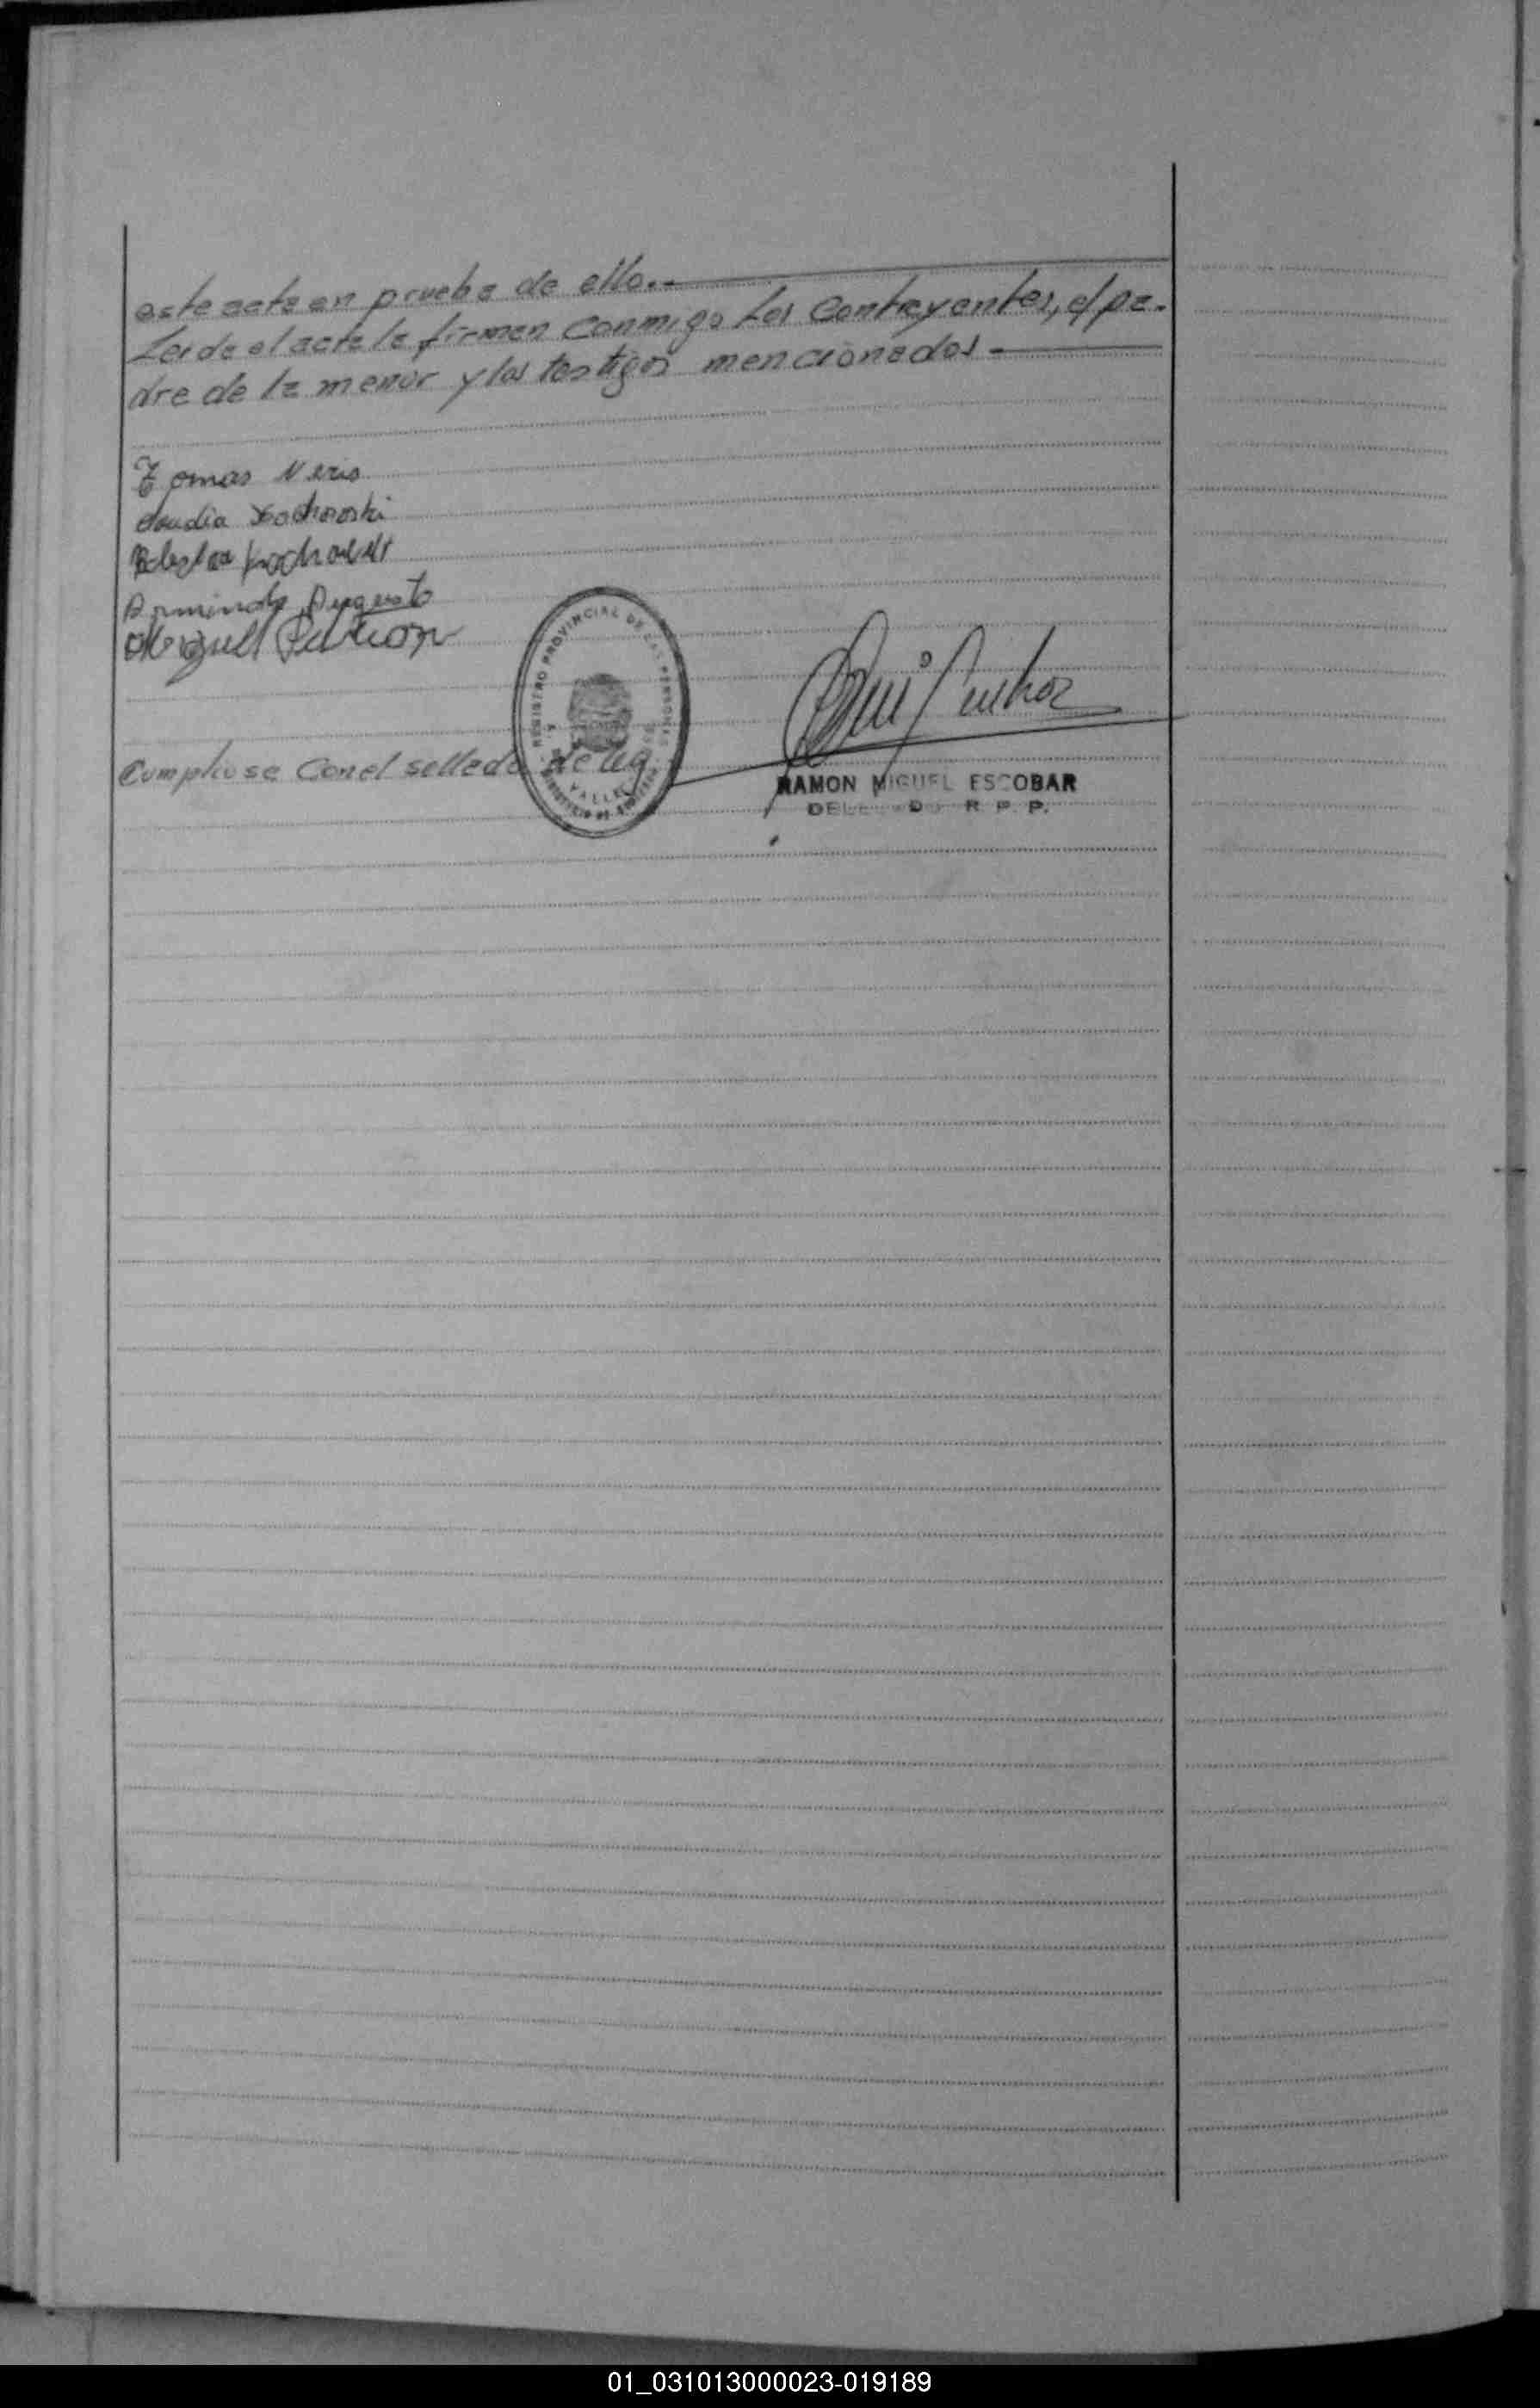 este acta en prueba de ello.-
Leida el acta la firman conmigo los contrayentes, el pa-
dre de la menor y los testigos mencionados -
Tomas Neris
Claudia Kochowski
Kochowski
Armindo Augusto
Miguel
Cumpliose con el sellado de ley
REGISTRO PROVINCIAL DE LAS PERSONAS
VALLE
RAMON MIGUEL ESCOBAR
DELEGADO R. P. P.
01_031013000023-019189